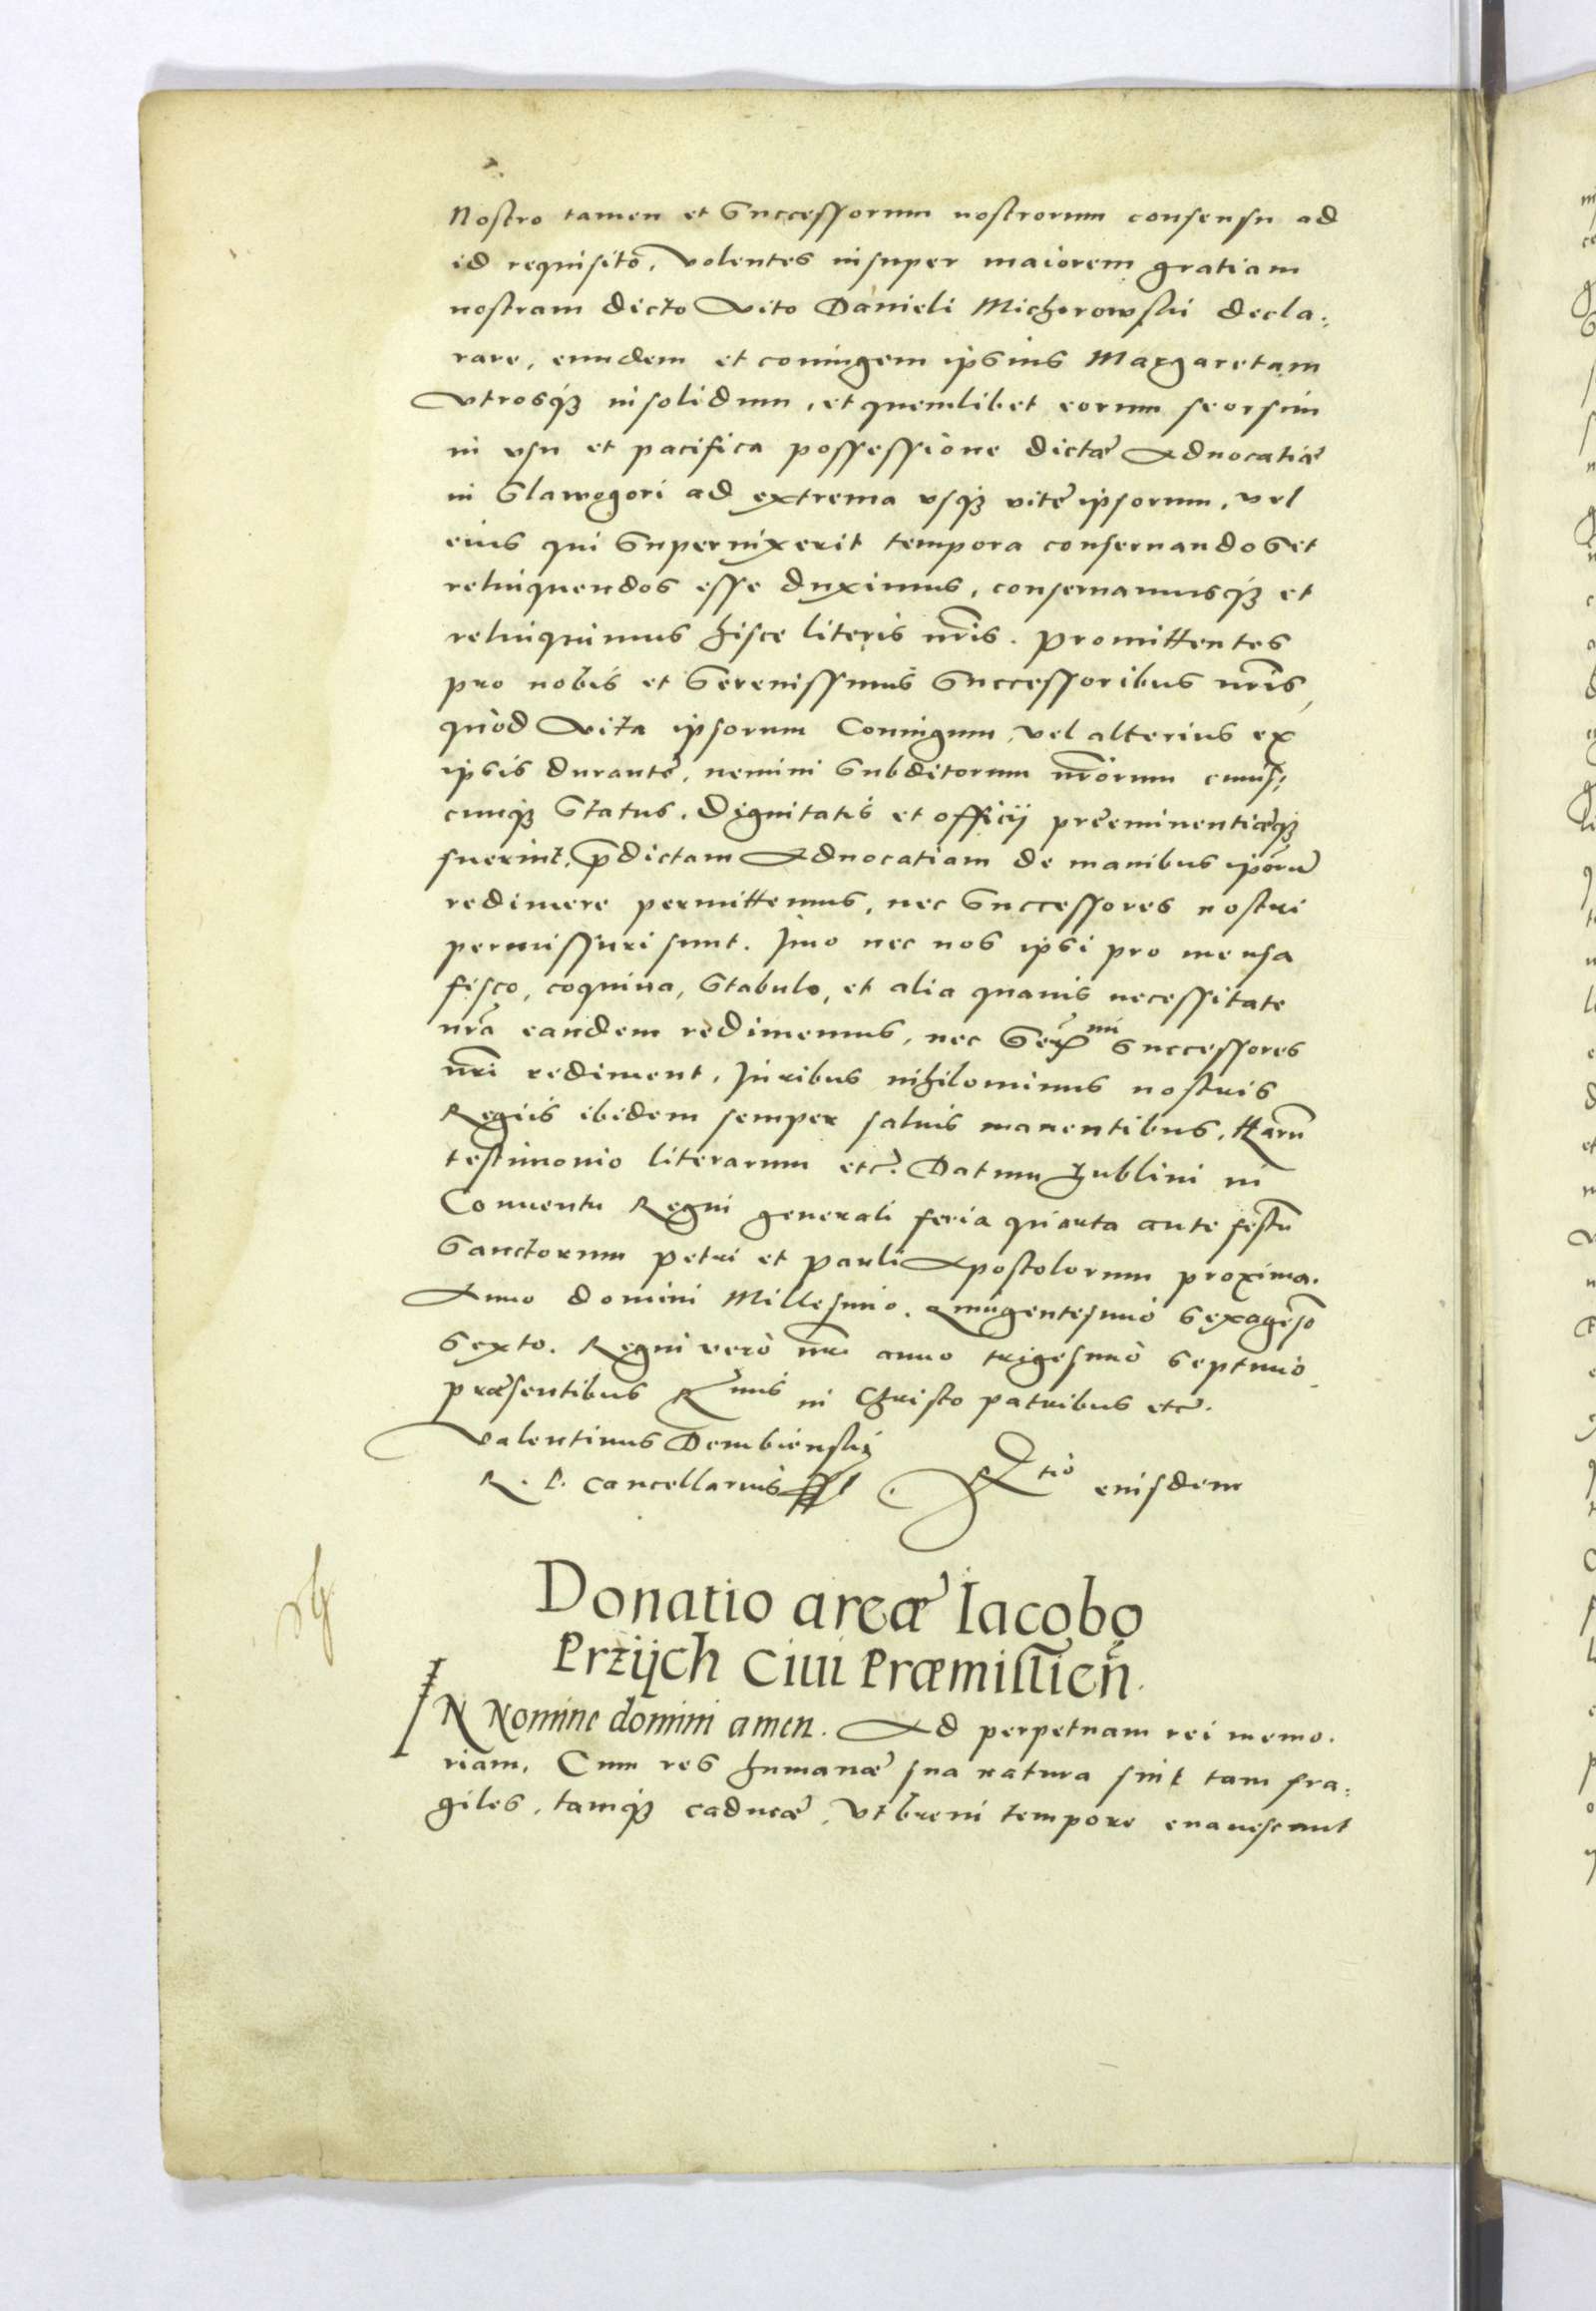 Nostro tamen et Successorum nostrorum consensu ad
id requisito. Volentes insuper maiorem gratiam
nostram dicto Vito Danieli Michorowski decla:
rare, eundem et coniugem ipsius Margaretam
Vtrosq₃ insolidum, et quemlibet eorum seorsim
in vsu et pacifica possessione dictæ Aduocatiæ
in Slawogori ad extrema vsq₃ vitę ipsorum, vel
eius qui Superuixerit tempora conseruandos et
relinquendos esse duximus, conseruamusq₃ et
relinquimus hisce literis nr̃is. Promittentes
pro nobis et Serenissimis Successoribus nr̃is,
quòd Vita ipsorum Coniugum, vel alterius ex
ipsis durante, nemini Subditorum nr̃orum cuius,
cunq₃ Status, Dignitatis et officij preeminentiæq₃
fuerint, p̃dictam Aduocatiam de manibus ip̃orũ
redimere permittemus, nec Successores nostri
permissuri sunt. Imo nec nos ipsi pro mensa
fisco, coquina, Stabulo, et alia quauis necessitate
nr̃a eandem redimemus, nec Serᵐⁱ Successores
nr̃i rediment, Iuribus nihilominus nostris
Regijs ibidem semper saluis manentibus. Harũ
testimonio literarum etc̃. Datum Lublini in
Conuentu Regni generali feria quarta ante festũ
Sanctorum Petri et Pauli Apostolorum proxima.
Anno domini Millesimo. Quingentesimo Sexageso
Sexto. Regni verò nr̃i anno trigesimo Septimo.
præsentibus Rᵐⁱˢ in Christo patribus etc̃.
Valentinus Dembienskj
R. P. Cancellarius Rᵗⁱᵒ eiusdem
Donatio areæ Iacobo
Przÿch Ciui Præmislien̄.
IN Nomine domini amen. Ad perpetuam rei memo.
riam. Cum res humanæ sua natura sint tam fra:
giles, tamq₃ caducæ, Vt breui tempore euanescant